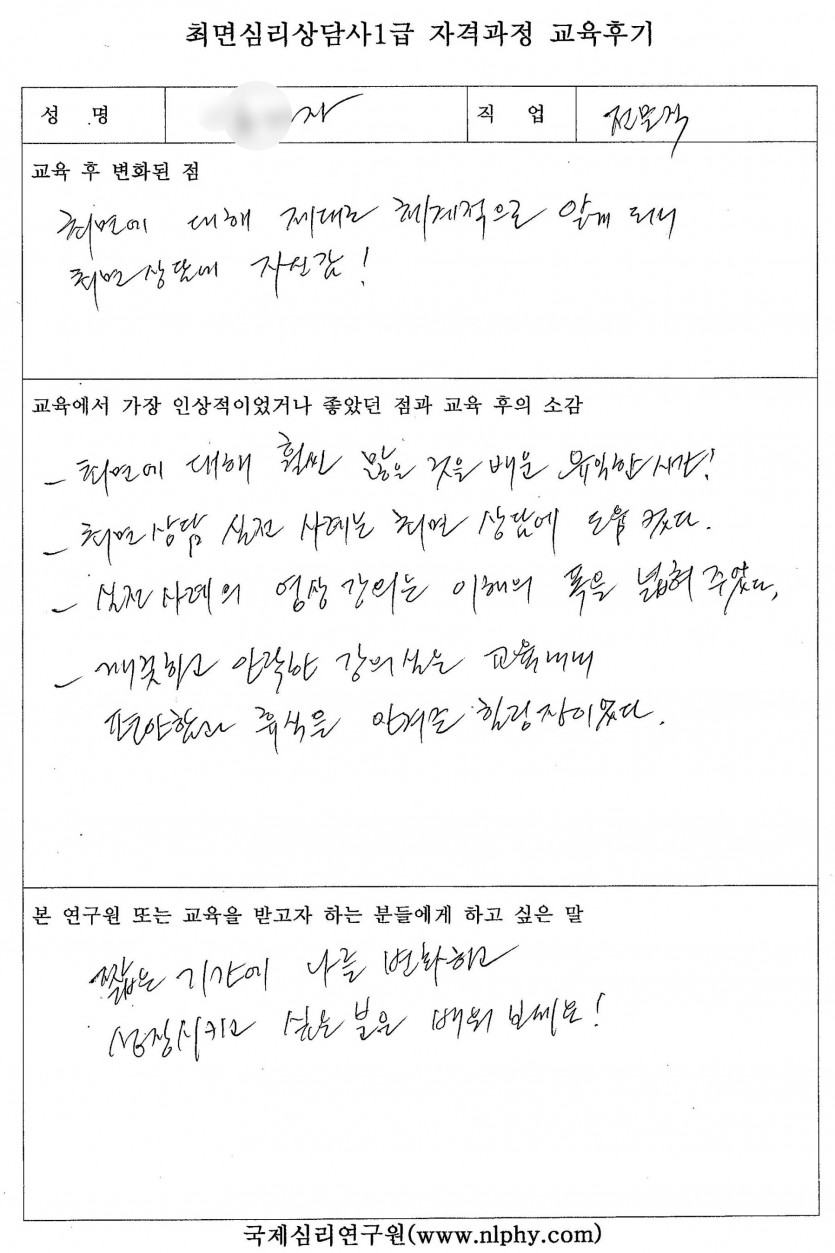 최면심리상담사1급 자격과정 교육후기
성 명 자 직 업 전문직
교육 후 변화된 점
최면에 대해 제대로 체계적으로 알게 되니
최면상담에 자신감!
교육에서 가장 인상적이었거나 좋았던 점과 교육 후의 소감
- 최면에 대해 훨씬 많은 것을 배운 유익한 시간!
- 최면상담 실전 사례는 최면 상담에 도움 컸다.
- 실전사례의 영상 강의는 이해의 폭을 넓혀 주었다.
- 깨끗하고 안락한 강의실은 교육내내
편안함과 휴식을 안겨준 힐링장이었다.
본 연구원 또는 교육을 받고자 하는 분들에게 하고 싶은 말
짧은 기간에 나를 변화하고
성장시키고 싶은 분은 배워 보세요!
국제심리연구원(www.nlphy.com)